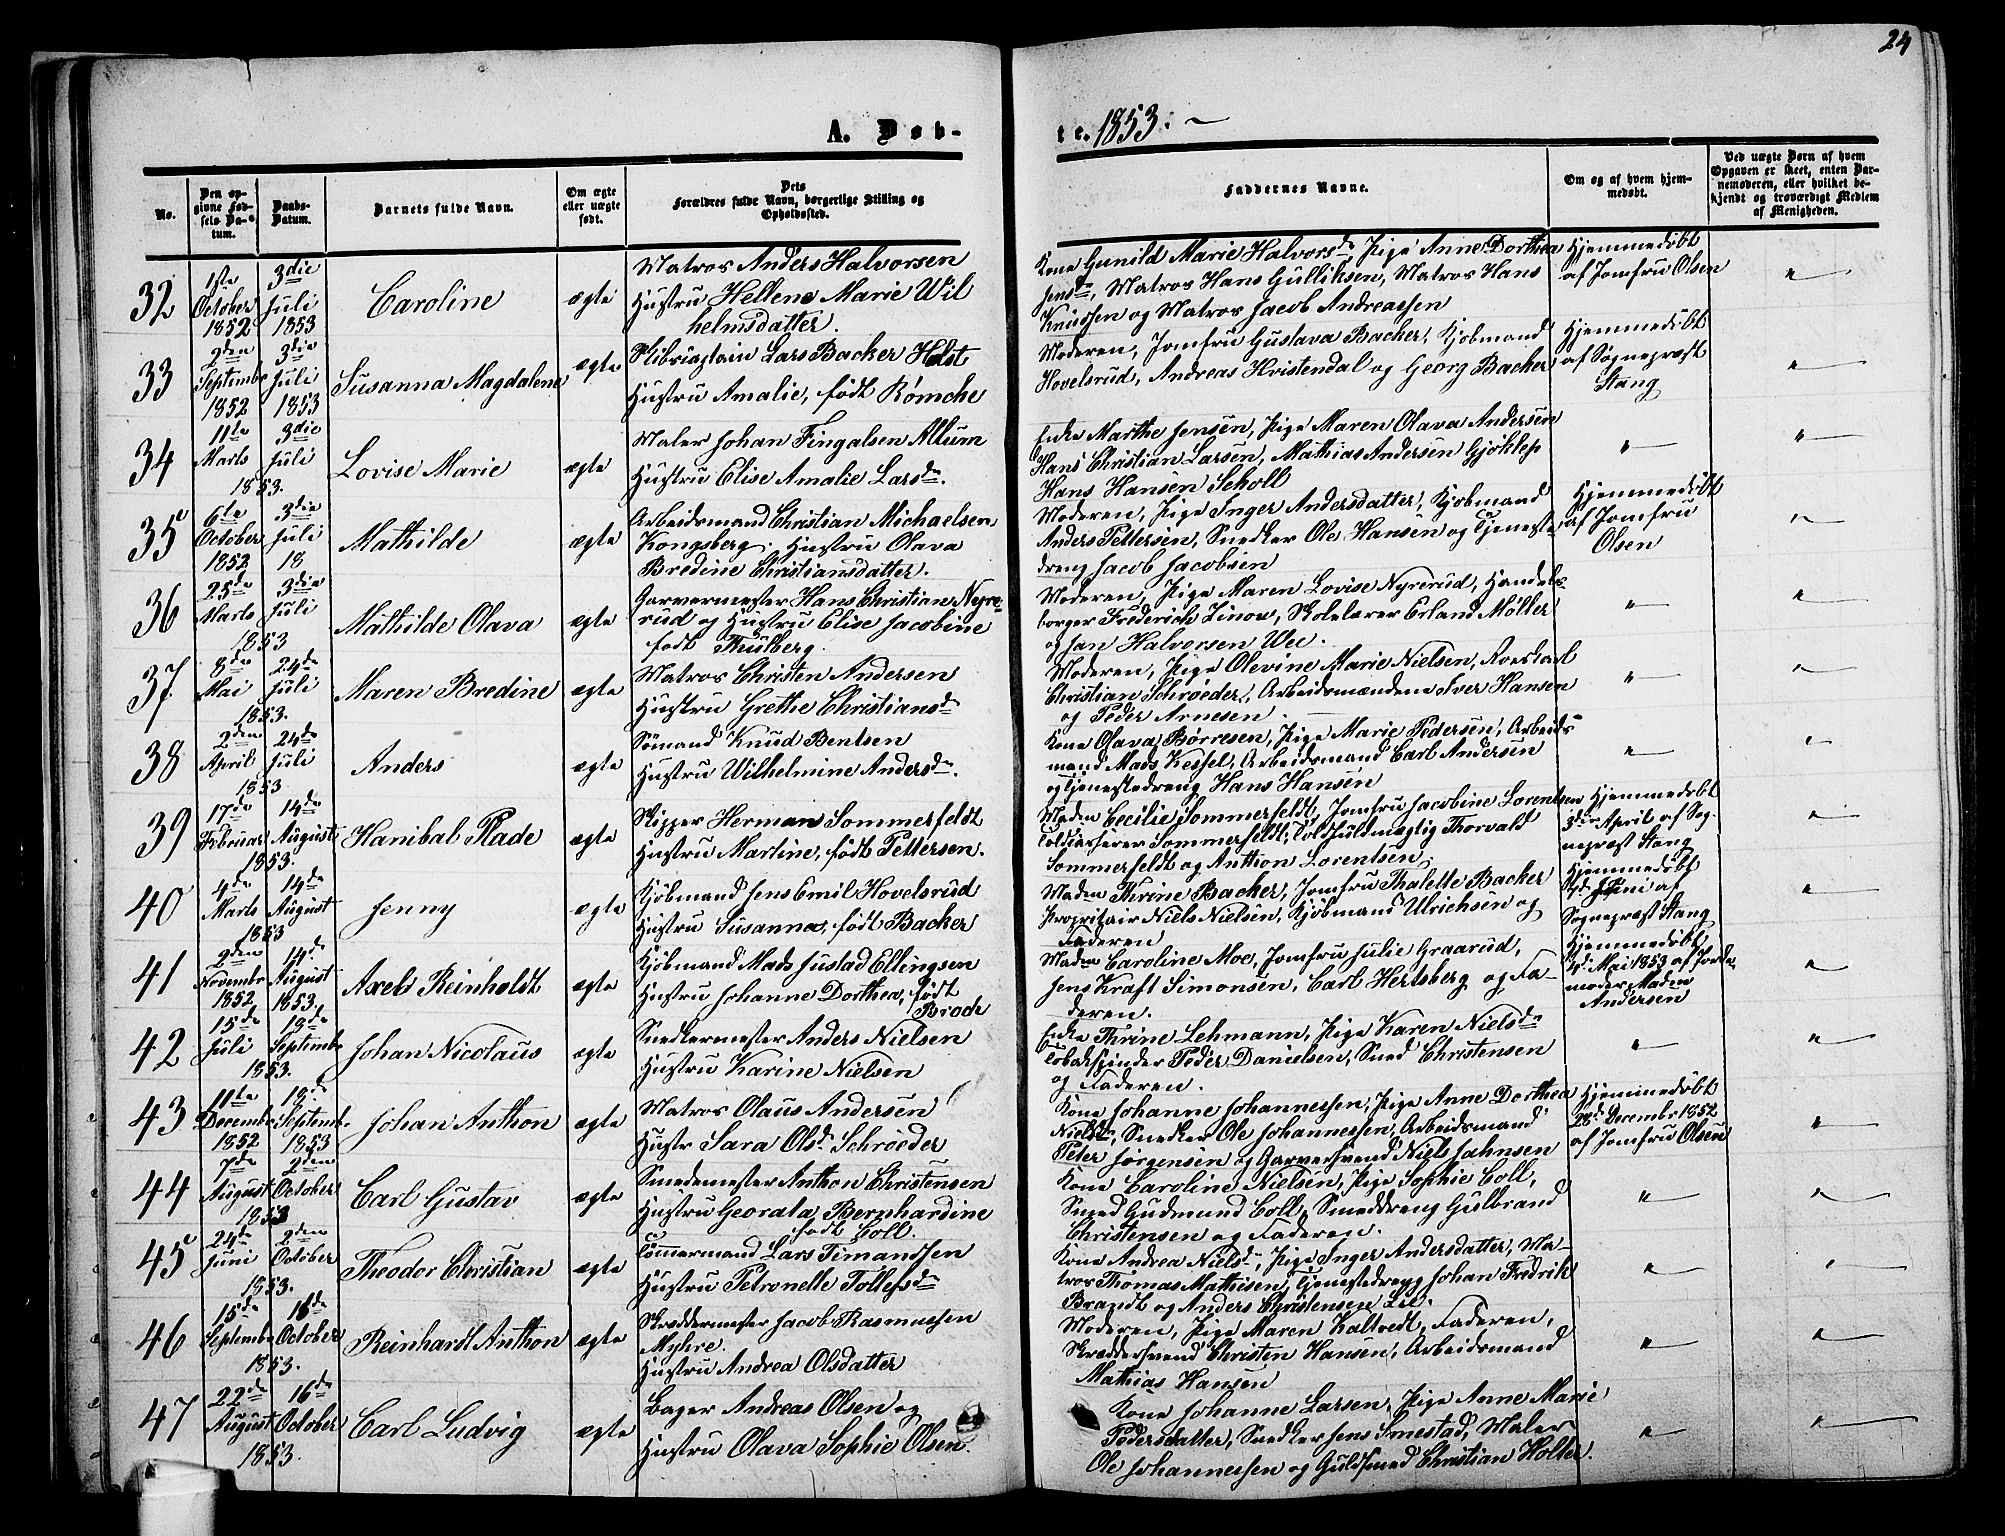 24
A. Døb-
te. 1853. ~
No.
Den op-
givne Fød-
sels-Da-
tum.
Daabs-
Datum.
Barnets fulde Navn.
Om ægte
eller uægte
født.
Dets
Forældres fulde Navn, borgerlige Stilling og
Opholdssted.
Faddernes Navne.
Om og af hvem hjem-
medøbt.
Ved uægte Børn af hvem
Opgaven er skeet, enten Bar-
nemoderen, eller hvilket be-
kjendt og troværdigt Medlem
af Menigheden.
32
1ste
October
1852
3die
Juli
1853
Caroline
ægte
Matros Anders Halvorsen
Hustru Hellene Marie Wil
helmsdatter.
Kone Gunild Marie Halvorsdn, Pige Anne Dorthea
Jensdn, Matros Hans Gulliksen, Matros Hans
Knudsen og Matros Jacob Andreassen
Hjemmedøbt
af Jomfru Olsen
"
33
2den
Septembr
1852
3die
Juli
1853
Susanna Magdalene
ægte
Skibscaptain Lars Backer Holst
Hustru Amalie, født Rømche
Moderen, Jomfru Gustava Backer, Kjøbmand
Hovelsrud, Andreas Hvistendal og Georg Backer
Hjemmedøbt
af Sognepræst
Stang
"
34
11te
Marts
3die
Juli
1853.
Lovise Marie
ægte
Maler Johan Fingalsen Allum
Hustru Elise Amalie Larsdn.
Enke Marthe Jensen, Pige Maren Olava Andersen
Hans Christian Larsen, Mathias Andersen Gjøklep
Hans Hansen Scholl
"
"
35
6te
October
1852
3die
Juli
18
Mathilde
ægte
Arbeidsmand Christian Michaelsen
Kongsberg. Hustru Olava
Bredine Christiansdatter.
Moderen, Pige Inger Andersdatter, Kjøbmand
Anders Pettersen, Snedker Ole Hansen og Tjeneste
dreng Jacob Jacobsen
Hjemmedøbt
af Jomfru
Olsen
"
36
25de
Marts
3die
Juli
1853
Mathilde Olava
ægte
Garvermester Hans Christian Nyre-
rud og Hustru Elise Jacobine
født Thulberg.
Moderen, Pige Maren Lovise Nyrerud, Handels
borger Frederich Linow, Skolelærer Erland Møller
og Jan Halvorsen Wee.
"
"
37.
8de
Mai
24de
Juli
1853.
Maren Bredine
ægte
Matros Christen Andersen
Hustru Grethe Christiansdn
Moderen, Pige Olevine Marie Nielsen, Roeskarl
Christian Schrøeder, Arbeidsmændene Iver Hansen
og Peder Arnesen.
"
"
38
2den
April
24de
Juli
1853
Anders
ægte
Sømand Knud Bentsen
Hustru Wilhelmine Andersdn.
Kone Olava Børresen, Pige Marie Pedersen, Arbeids-
mand Mads Kessel, Arbeidsmand Carl Andersen
og Tjenestedreng Hans Hansen
"
"
39
17de
Februar
14de
August
1853.
Hanibal Plade
ægte
Skipper Herman Sommerfeldt
Hustru Martine, født Pettersen.
Madm Cecilie Sommerfeldt, Jomfru Jacobine Lorentsen
Toldcasserer Sommerfeldt, Toldfuldmægtig Thorvald
Sommerfeldt og Anthon Lorentsen.
Hjemmedøbt
3die April af Sog-
nepræst Stang
"
40
4de
Marts
14de
August
1853
Jenny
ægte
Kjøbmand Jens Emil Hovelsrud
Hustru Susanna, født Backer
Madm Thrine Backer, Jomfru Thalette Backer
Proprietair Niels Nielsen, Kjøbmand Ulrichsen og
Faderen
Hjemmedøbt
Juni af
Sognepræst Stang
"
41
2den
Novembr
1852
14de
August
1853.
Axel Reinholdt
ægte
Kjøbmand Mads Justad Ellingsen
Hustru Johanne Dorthea, født
Brode
Madm Caroline Moe, Jomfru Julie Graarud,
Jens Kraft Simonsen, Carl Hertsberg og Fa-
deren.
Hjemmedøbt
Mai 1853 af Jorde
moder Madm
Andersen
"
42
15de
Juli
18de
Septembr
1853.
Johan Nicolaus
ægte
Snedkermester Anders Nielsen
Hustru Karine Nielsen
Enke Thrine Lehmann, Pige Karen Nielsdn
Tobakspinder Peder Danielsen, Smed Christensen
og Faderen.
"
"
43
11te
Decembr
1852
18de
Septembr
1853
Johan Anthon
ægte
Matros Olaus Andersen
Hustr Sara Olsdn Schrøeder
Kone Johanne Johannessen, Pige Anne Dorthea
Nielsdn, Snedker Ole Johannessen, Arbeidsmand
Peter Jørgensen og Garversvend Niels Jahnsen
Hjemmedøbt
28de Decembr 1852
af Jomfru Olsen
"
44
7de
August
2den
October
1853
Carl Gustav
ægte
Smedemester Anthon Christensen
Hustru Georata Bernhardine
født Coll.
Kone Caroline Nielsen, Pige Sophie Coll,
Smed Gudmund Coll, Smeddreng Gulbrand
Christensen og Faderen.
"
"
45
24de
Juni
2den
October
1853.
Theodor Christian
ægte
Tømmermand Lars Timandsen
Hustru Petronelle Tollefsdn
Kone Andrea Nielsdn, Pige Inger Andersdatter, Ma-
tros Thomas Mathisen, Tjenestedreng Johan Fredrik
Brandt og Anders Christensen Lie.
"
"
46
15de
Septembr
16de
October
1853.
Reinhardt Anthon
ægte
Skræddermester Jacob Rasmussen
Myhre.
Hustru Andrea Olsdatter
Moderen, Pige Maren Kaltvedt, Faderen,
Skræddersvend Christen Hansen, Arbeidsmand
Mathias Hansen
"
"
47
22de
August
16de
October
1853.
Carl Ludvig
ægte
Bager Andreas Olsen og
Hustru Olava Sophie Olsen.
Kone Johanne Larsen, Pige Anne Marie
Pedersdatter, Snedker Jens Smestad, Maler
Ole Johannessen og Guldsmed Christian Holter.
"
"